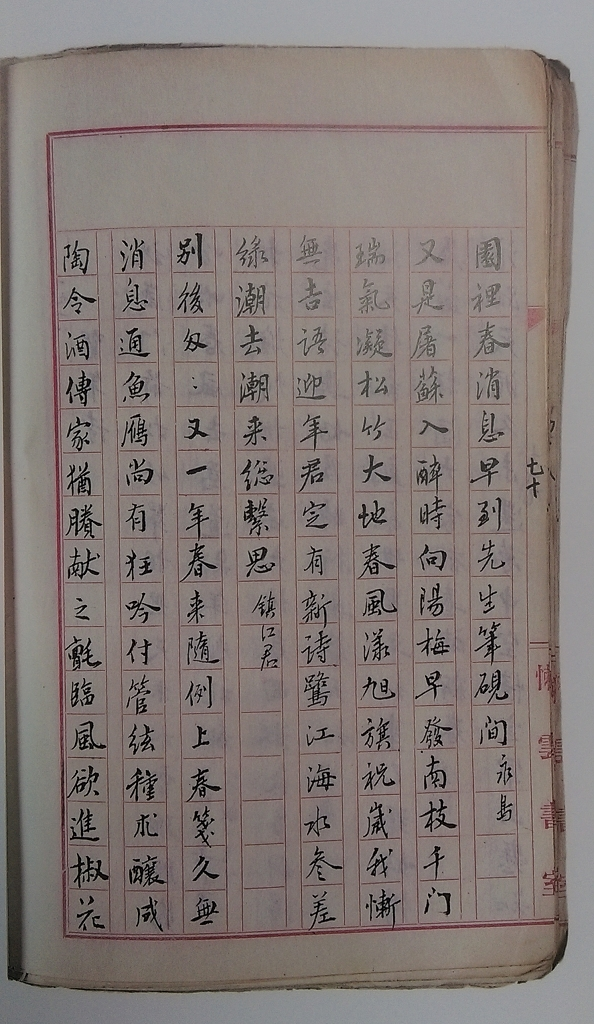 園裡春消息早到先生筆硯间永島
又是屠蘇入醉時向陽梅早發南枝千门
瑞氣凝松竹大地春風漾旭旗祝嵗我慚
無吉語迎年君定有新詩鷺江海水参差
綠潮去潮来総繫思鎮江君
别後匆〻又一年春来隨例上春箋久無
消息通魚雁尚有狂吟付管絃種朮釀成
陶令酒傳家猶賸献之氈臨風欲進椒花
七十
懷雲書室